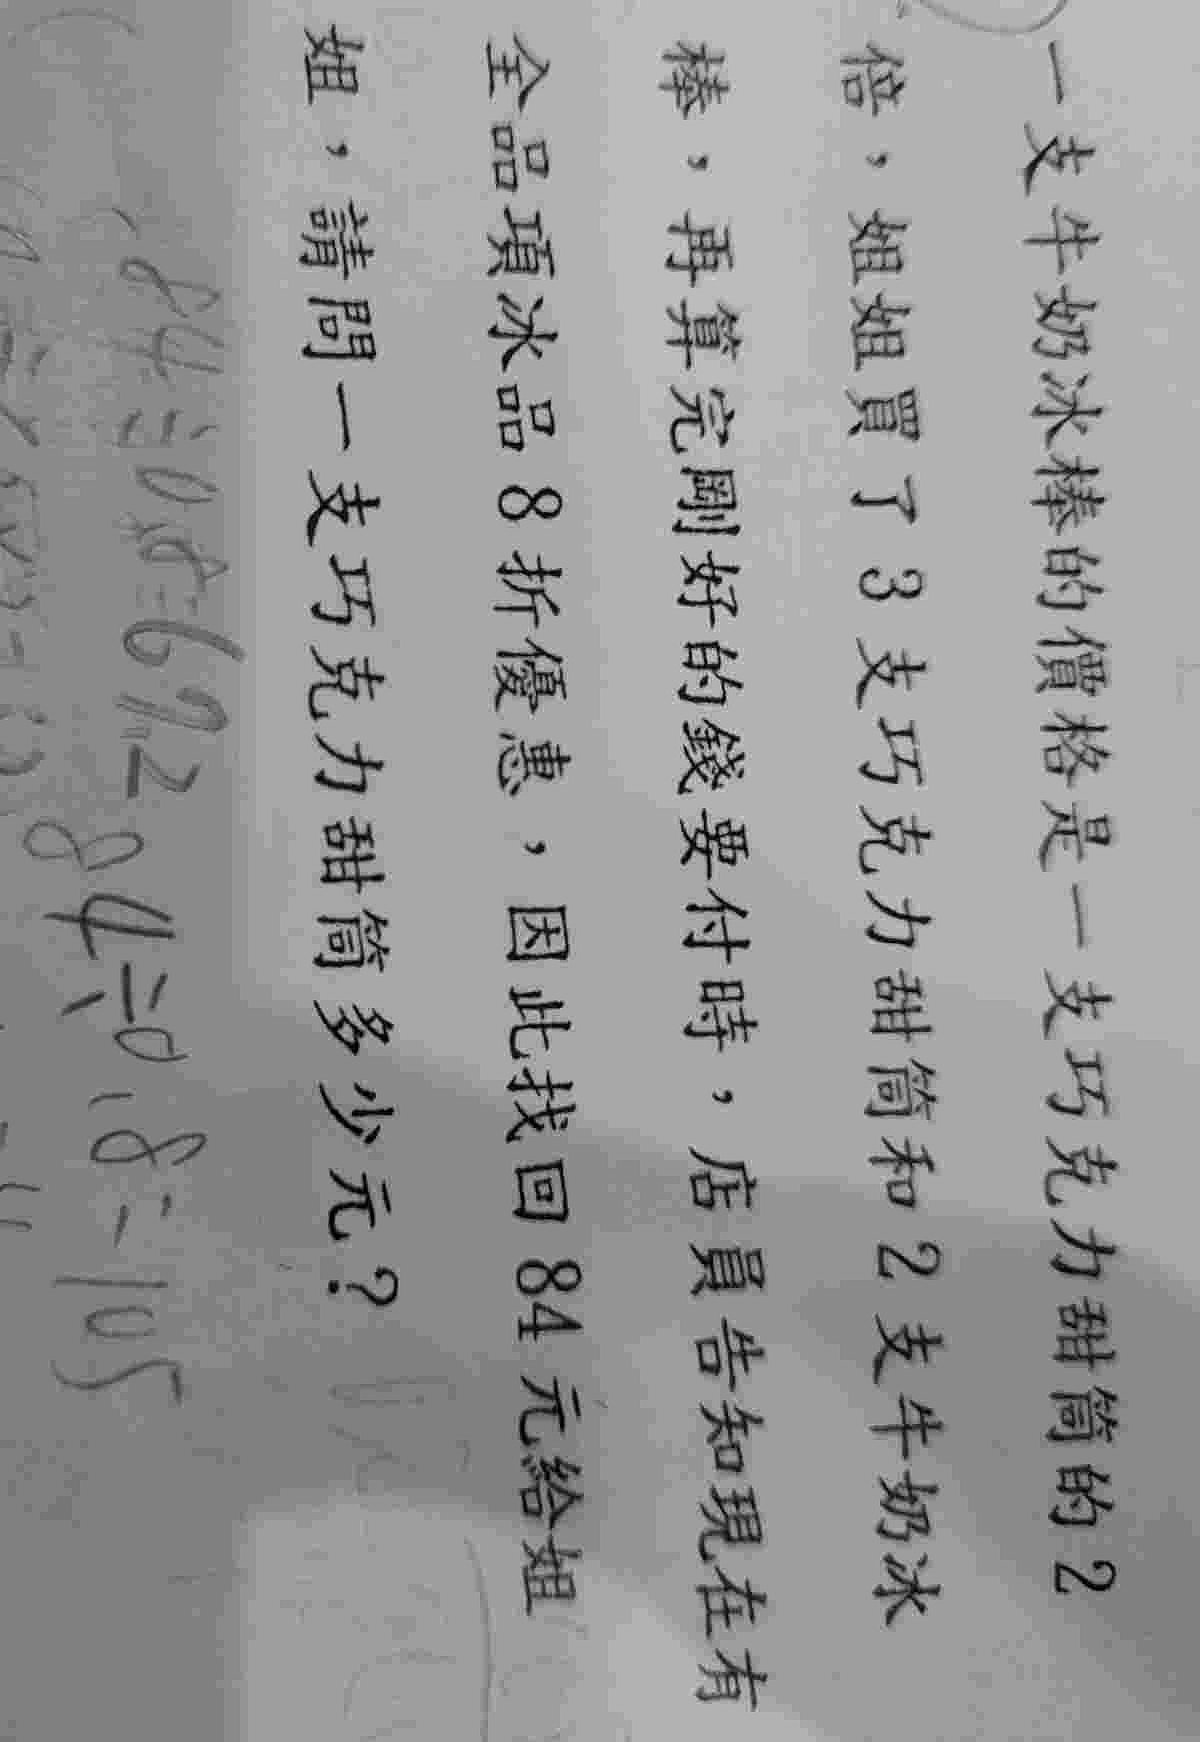 一支牛奶冰棒的價格是一支巧克力甜筒的2
倍，姐姐買了3支巧克力甜筒和2支牛奶冰
棒，再算完剛好的錢要付時，店員告知現在有
全品項冰品8折優惠，因此找回84元給姐
姐，請問一支巧克力甜筒多少元？
84÷0.8=105